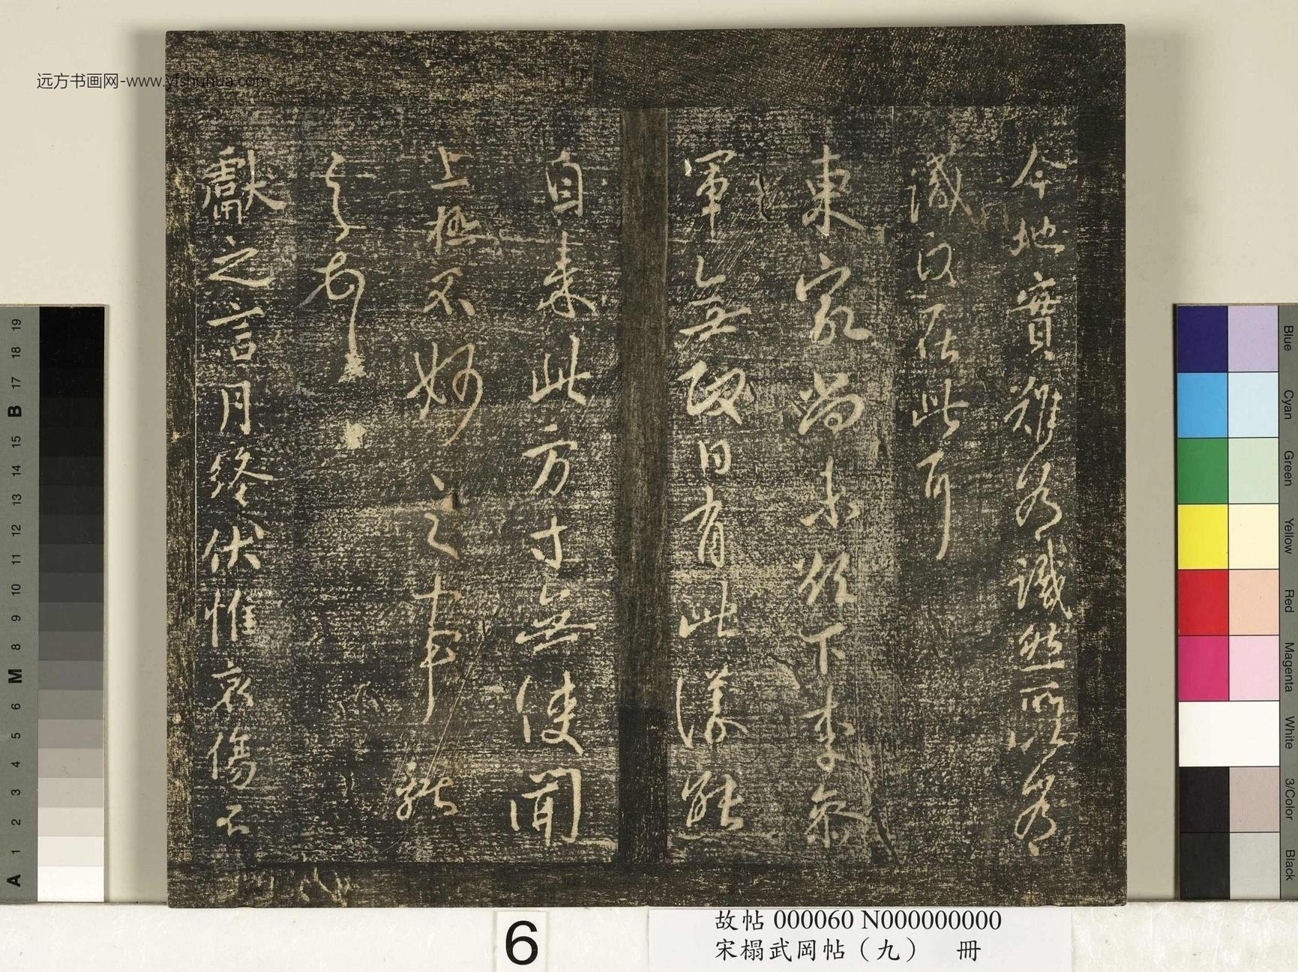 今地實難為識然所以為
識政在此耳
東家尚未欲下李參
軍無改日有此議能
自来此方寸無使聞
上極不妙之事
獻之
獻之言月終伏惟哀傷不
远方书画网-www.yfshuhua.com
故帖 000060 N000000000
宋榻武岡帖（九） 冊
6
19
18
17
B
15
14
13
12
11
10
9
8
M
6
5
4
3
2
1
A
Blue
Cyan
Green
Yellow
Red
Magenta
White
3/Color
Black